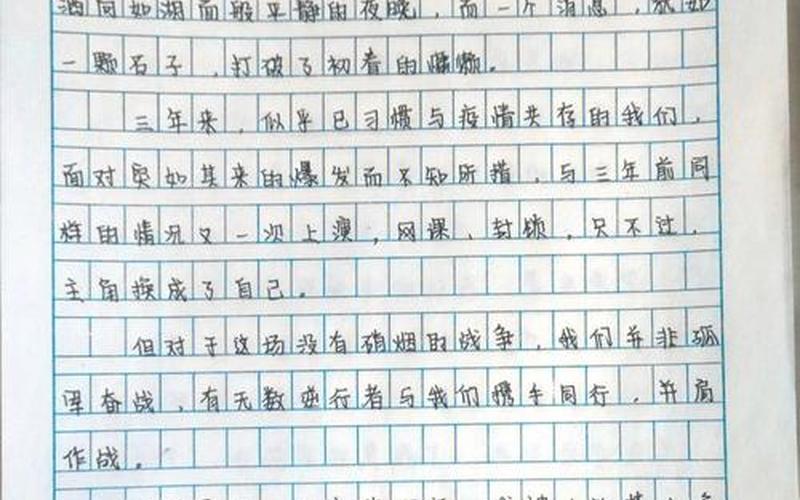 如湖面般平静的夜晚,而一个消息,就如
一颗石子,打破了初春的慵懒。
三年来,似乎已习惯与疫情共存的我们,
面对突如其来的爆发而不知所措,与三年前同
样的情况又一次上演,网课、封锁,只不过,
主角换成了自己。
但对于这场没有硝烟的战争,我们并非孤
军奋战,有无数逆行者与我们携手同行,并肩
作战。